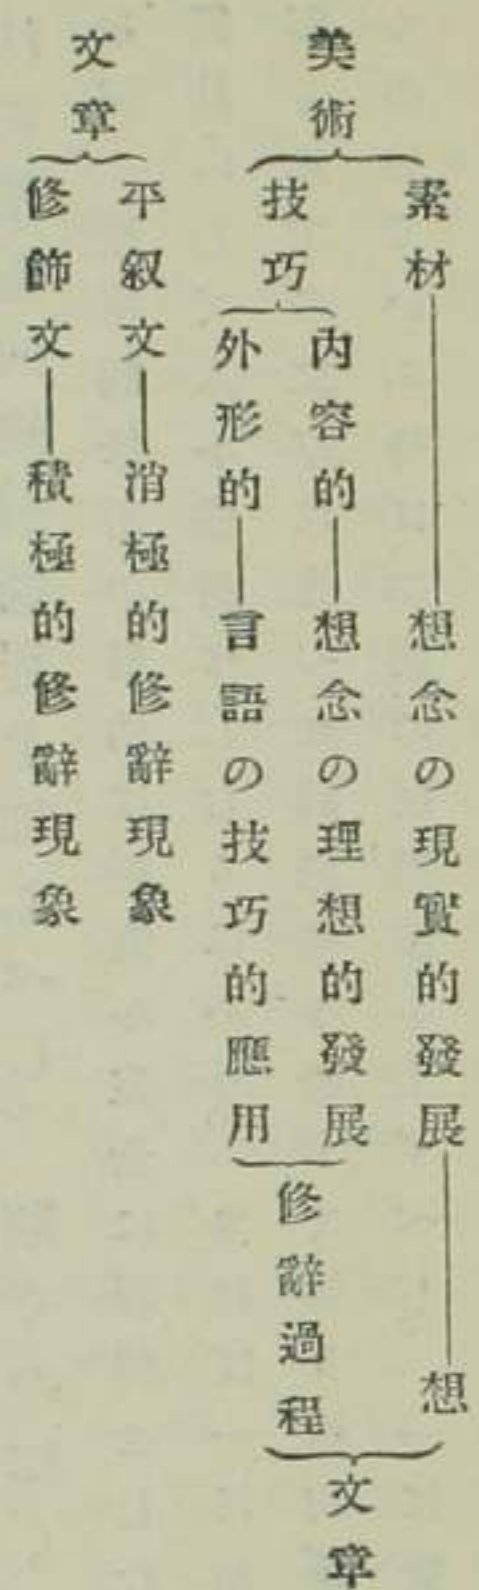 美術
素材――想念の現實的發展――想
技巧
内容的――想念の理想的發展
外形的――言語の技巧的應用
修辭過程
文章
文章
平叙文――消極的修辭現象
修飾文――積極的修辭現象